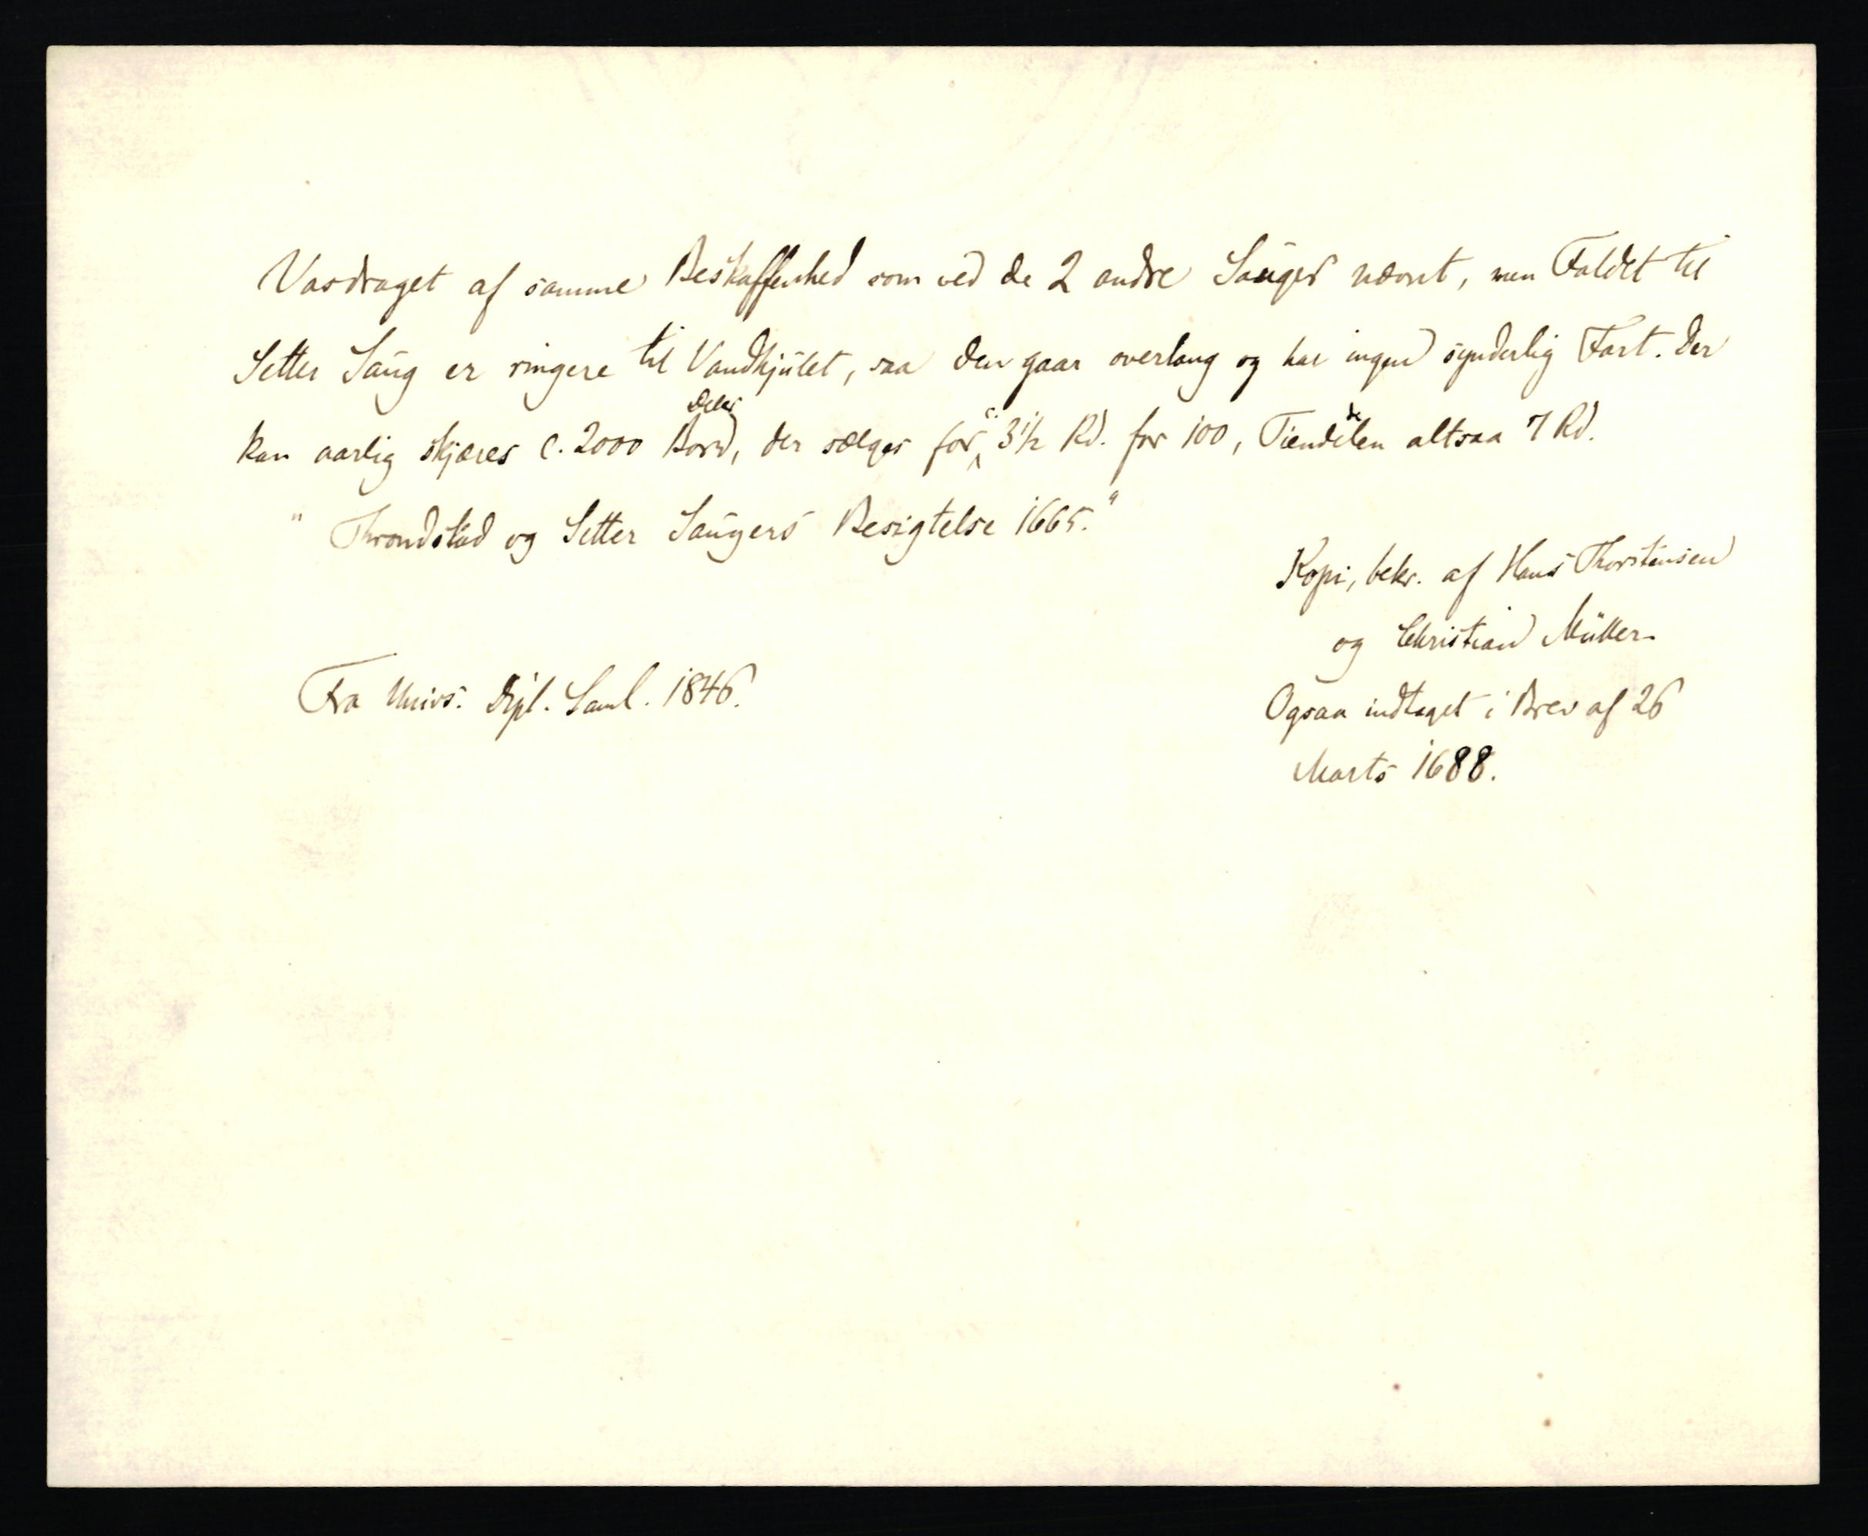 Vasdraget af samme Beskaffenhed som ved de 2 andre Sauger nævnt, men Faldet til
Setter Saug er ringere til Vandhjulet, saa den gaar overlang og har ingen synderlig Fart. Der
kan aarlig skjæres c. 2000 Bord, der sælges for c. 3½ Rd. for 100, Tiendedelen altsaa 7 Rd.
"Throndstad og Setter Saugers Besigtelse 1665."
Kopi, bekr. af Hans Thorstensen
og Christian Müller.
Fra Univs. Dipl. Saml. 1846.
Ogsaa indtaget i Brev af 26
Marts 1688.